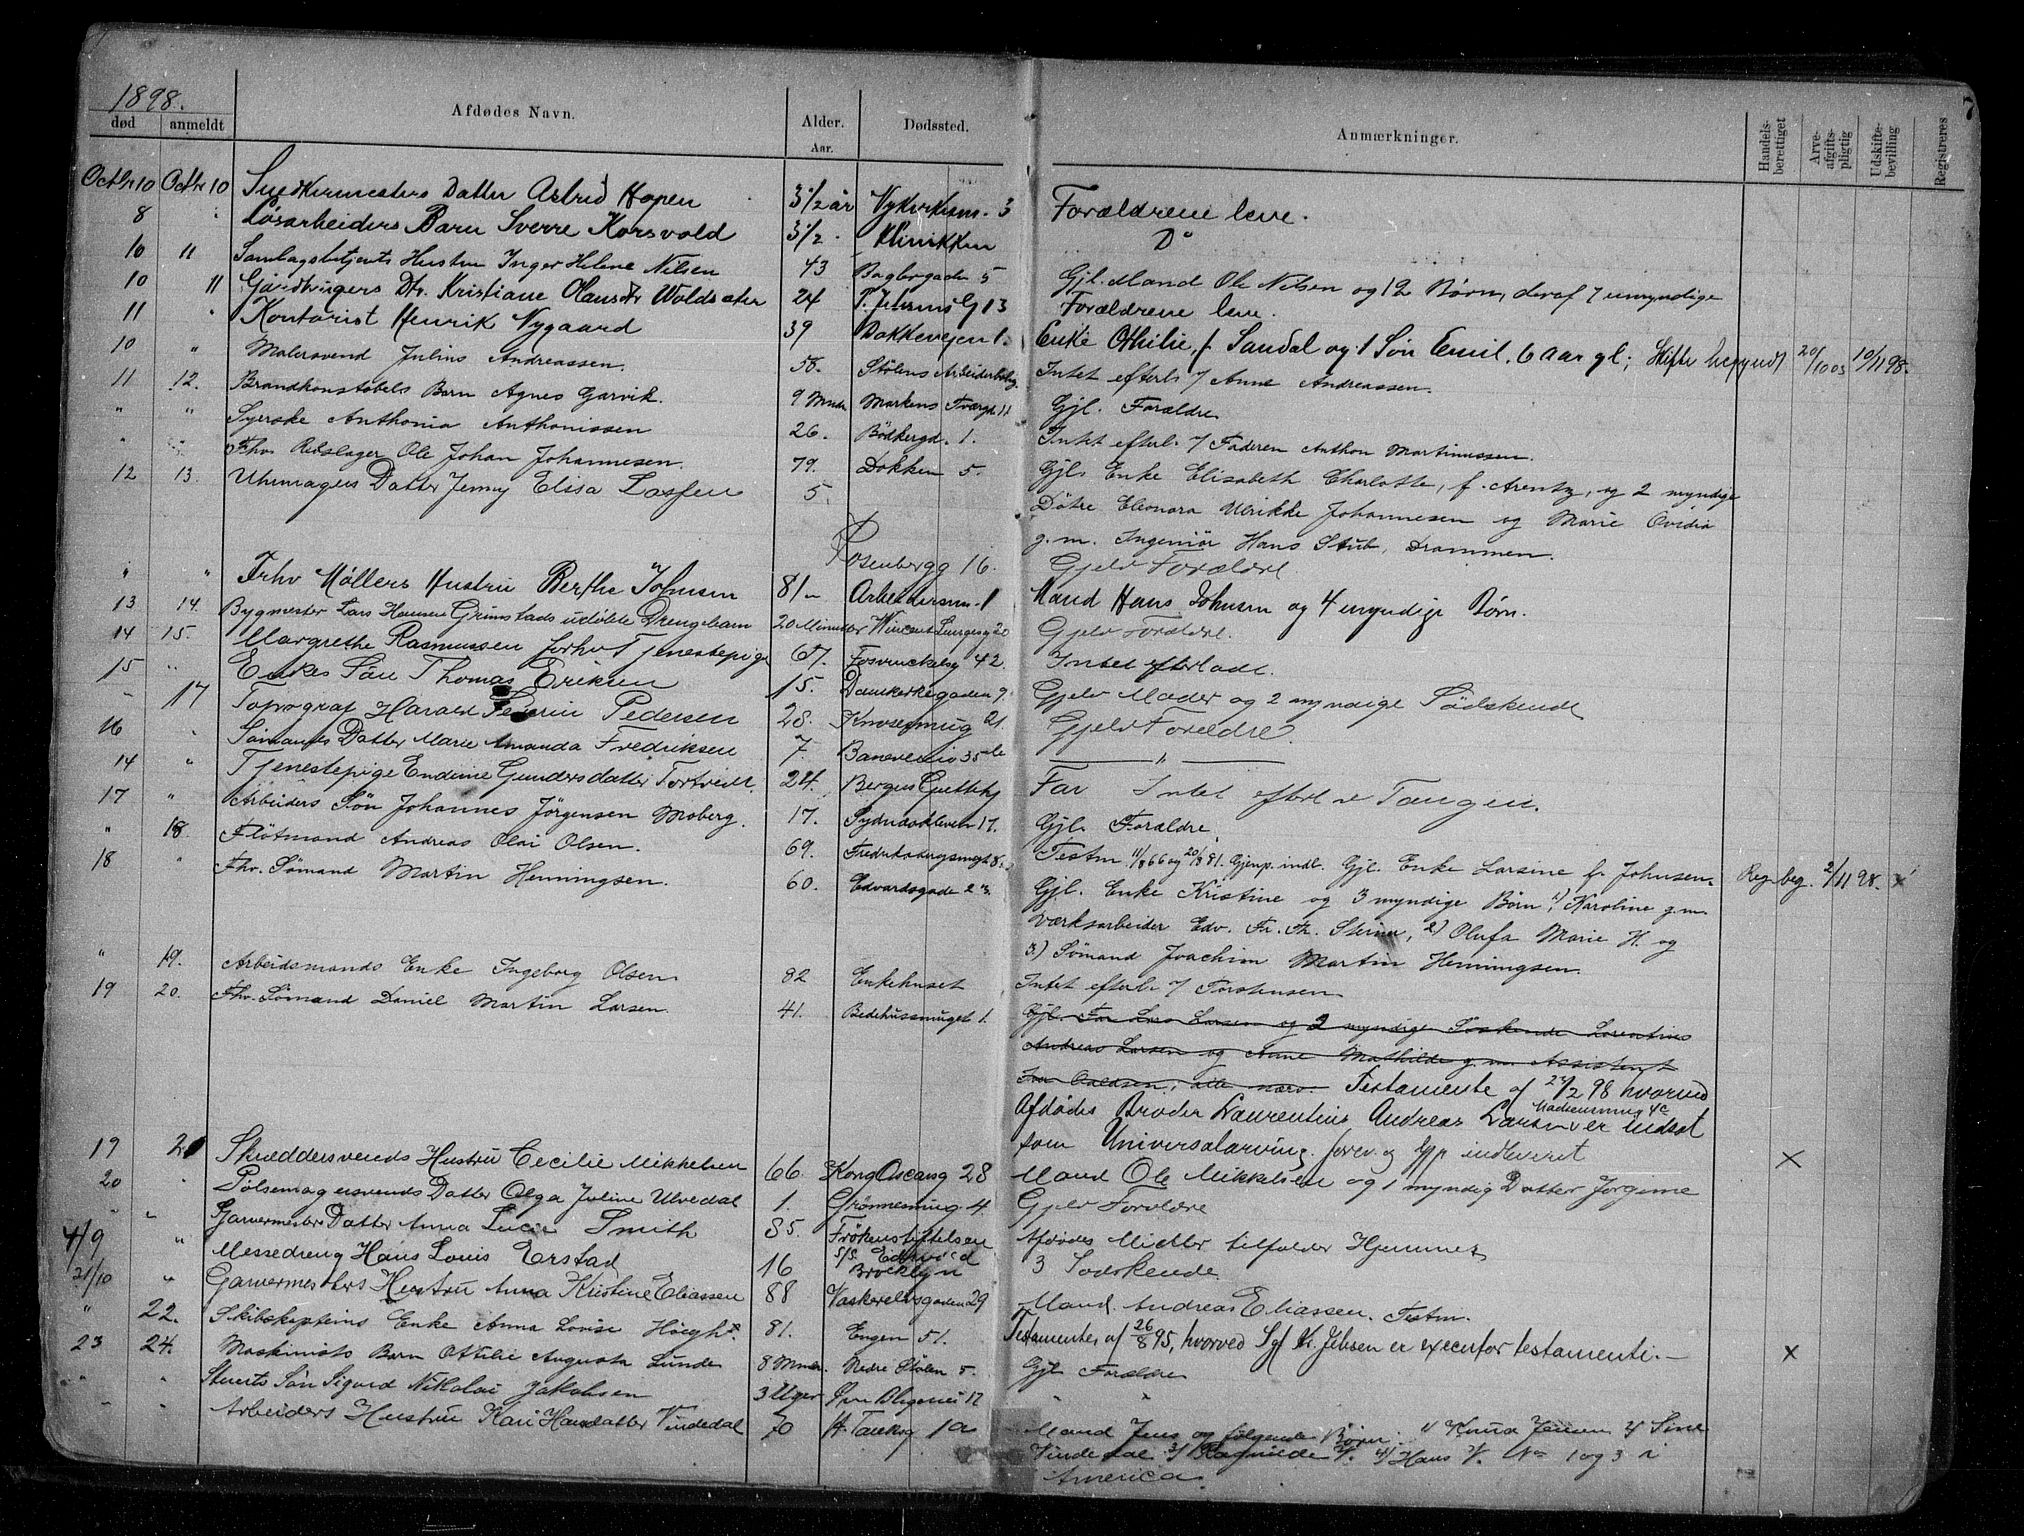 1898.
7
død anmeldt Afdødes Navn. Alder. Aar. Dødssted. Anmærkninger. Handels-berettiget Arve-afgifts-pligtig Udskifte-bevilling Registreres
Octbr 10 Octbr 10 Snedkermesters Datter Astrid Hopen 3 1/2 år Nykirkesm. 3 Forældrene leve.
8 " Løsarbeiders Barn Sverre Korsvold 3 1/2 Klinikken Do
10 11 Samlagsbetjents Hustru Inger Helene Nilsen 43 Bøgbergaden 5 Gjl. Mand Ole Nilsen og 12 Børn, deraf 7 umyndige
10 11 Gårdbrugers Dtr. Kristiane Olausdtr Woldsæter 24 13 Forældrene leve.
11 " Kontorist Henrik Nygaard 39 Bakkevejen 1. Enke Othilie, f. Sandal og 1 Søn Emil, 6 Aar gl; Skifte begyndt 20/10 03 10/11 98.
10 " Malersvend Julius Andreassen. 58. Stølens Arbeiderbolig Intet efterl. / Anne Andreassen.
11 12. Brandkonstabels Barn Agnes Garvik. 9 Mndr Markens Tværgd 11 Gjl. Forældre
" " Syerske Anthonia Anthonissen 26. Bödkergd. 1. Intet efterl. / Faderen Anthon Martinussen.
" " Fhv. Rebslager Ole Johan Johannesen. 79. Dokken 5. Gjl. Enke Elisabeth Charlotte, f. Arentz, og 2 myndige
Døtre Eleonora Ulrikke Johannesen og Marie Ovidia
g. m. Ingeniør Hans Stub, Drammen.
12 13. Uhrmagers Datter Jenny Elisa Lassen 5. Rosenbergg 16. Gjelv Forældre
" " Frhv Møllers Hustru Berthe Johnsen 81 Arbeidersm. 1 Mand Hans Johnsen og 4 myndige Børn.
13 14. Bygmester Lars Hansen Grimstads udøbte Drengebarn 20 Minuter Wincent Lunges g 20 Gjelv Forældre.
14 15. Margrethe Rasmussen forhv Tjenestepige 67. Fosvinckelsg 42. Intet efterladt.
15 " Enkes Søn Thomas Eriksen 15. Damkerkegaden 9. Gjelv Moder og 2 myndige Sødskende
" 17 Topograf Harald Pedersen 28. Knøsesmug 21. Gjelv Forældre.
16 " Sømands Datter Marie Amanda Fredriksen 7. Baneveien 35 "
14 " Tjenestepige Endime Gundersdatter Tortveit. 24. Bergens Far Intet efterl
17 " Arbeiders Søn Johannes Jørgensen Moberg. 17. Sydnæskleven 17. Gjl. Forældre
" 18. Fløtmand Andreas Olai Olsen. 69. Testm. 11/8 66 og 20/3 81. Gjenp. indl. Gjl. Enke Larsine f. Johnsen. Reg. beg. 2/11 98. x
18 " Fhv. Sømand Martin Henningsen. 60. Edvardsgade 23. Gjl. Enke Kristine og 3 myndige Børn 1) Karoline g.m.
Værksarbeider Edv. Fr. Th. Steiner, 2) Olufa Marie H. og
3) Sømand Joachim Martin Henningsen.
" 19. Arbeidsmands Enke Ingeborg Olsen 82 Enkehuset Intet efterl. / Torstensen
19 20. Fhv. Sømand Daniel Martin Larsen. 41. Bedehussmuget 1. Gjl. Far Lars Larsen og 2 myndige Søskende Lorentius
Andreas Larsen og Anne Mathilde g.m. Assistent
Testamente af 24/2 98 hvorved
Afdødes Broder Laurentius Andreas Larsen er indsat
som Universalarving. forev. og Gjp indleveret x
19 21 Skræddersvends Hustru Cecilie Mikkelsen 66 Kong Oscarsg 28 Mand Ole Mikkelsen og 1 myndig Datter Jørgine
20 " Pølsemagersvends Datter Olga Juline Ulvedal 1. Grønnesmug 4. Gjelv Forældre
" " Garvermesters Datter Anna Lucie Smith 85. Frøkenstiftelsen Afdødes Midler tilfalder Hjemmet
4/9 " Messedreng Hans Louis Erstad 16 S/S. Brooklyn 3 Sødskende
21/10 " Garvermesters Hustru Anna Kristine Eliassen 88 Vaskerelvsgaden 29 Mand. Andreas Eliassen. Testm.
" 22. Skibskapteins Enke Anna Lovise Høegh. 81. Engen 51. Testamente af 26/8 95, hvorved Sgf Kr. Jebsen er executor testamenti. x
23 24. Maskinists Barn Ottilie Augusta Lunde 8 Mndr. Nedre Stølen 5. Gjl. Forældre
" " Stuerts Søn Sigurd Nikolai Jakobsen 3 Uger Øvre Blegevei 17 " "
" " Arbeiders Hustru Kari Hansdatter Vindedal 70 1a Mand Jens og følgende Børn: 1) Knud Jensen 2)
Vindedal 3) Ragnilde V. 4) Hans V. No 1 og 3 i
America